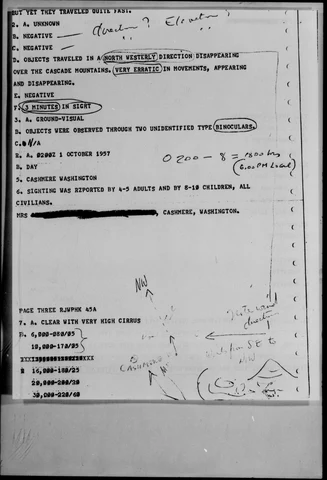 BUT YET THEY TRAVELED QUITE FAST.
2. A. UNKNOWN
direction? Elevation?
B. NEGATIVE
C. NEGATIVE
D. OBJECTS TRAVELED IN A NORTH WESTERLY DIRECTION DISAPPEARING
OVER THE CASCADE MOUNTAINS. VERY ERRATIC IN MOVEMENTS, APPEARING
AND DISAPPEARING.
E. NEGATIVE
F. 3 MINUTES IN SIGHT
3. A. GROUND-VISUAL
B. OBJECTS WERE OBSERVED THROUGH TWO UNIDENTIFIED TYPE BINOCULARS.
C. N/A
B. A. 0200Z 1 OCTOBER 1957
0200 - 8 = 1800 hrs
B. DAY
(6:00 PM Local)
5. CASHMERE WASHINGTON
6. SIGHTING WAS REPORTED BY 4-5 ADULTS AND BY 8-10 CHILDREN, ALL
CIVILIANS.
MRS CASHMERE, WASHINGTON.
NW
PAGE THREE RJWPHK 45A
7. A. CLEAR WITH VERY HIGH CIRRUS
direction
B. 6,000-080/05
10,000-170/05
SE to
NW
CASHMERE
16,000-180/25
20,000-200/20
30,000-220/60